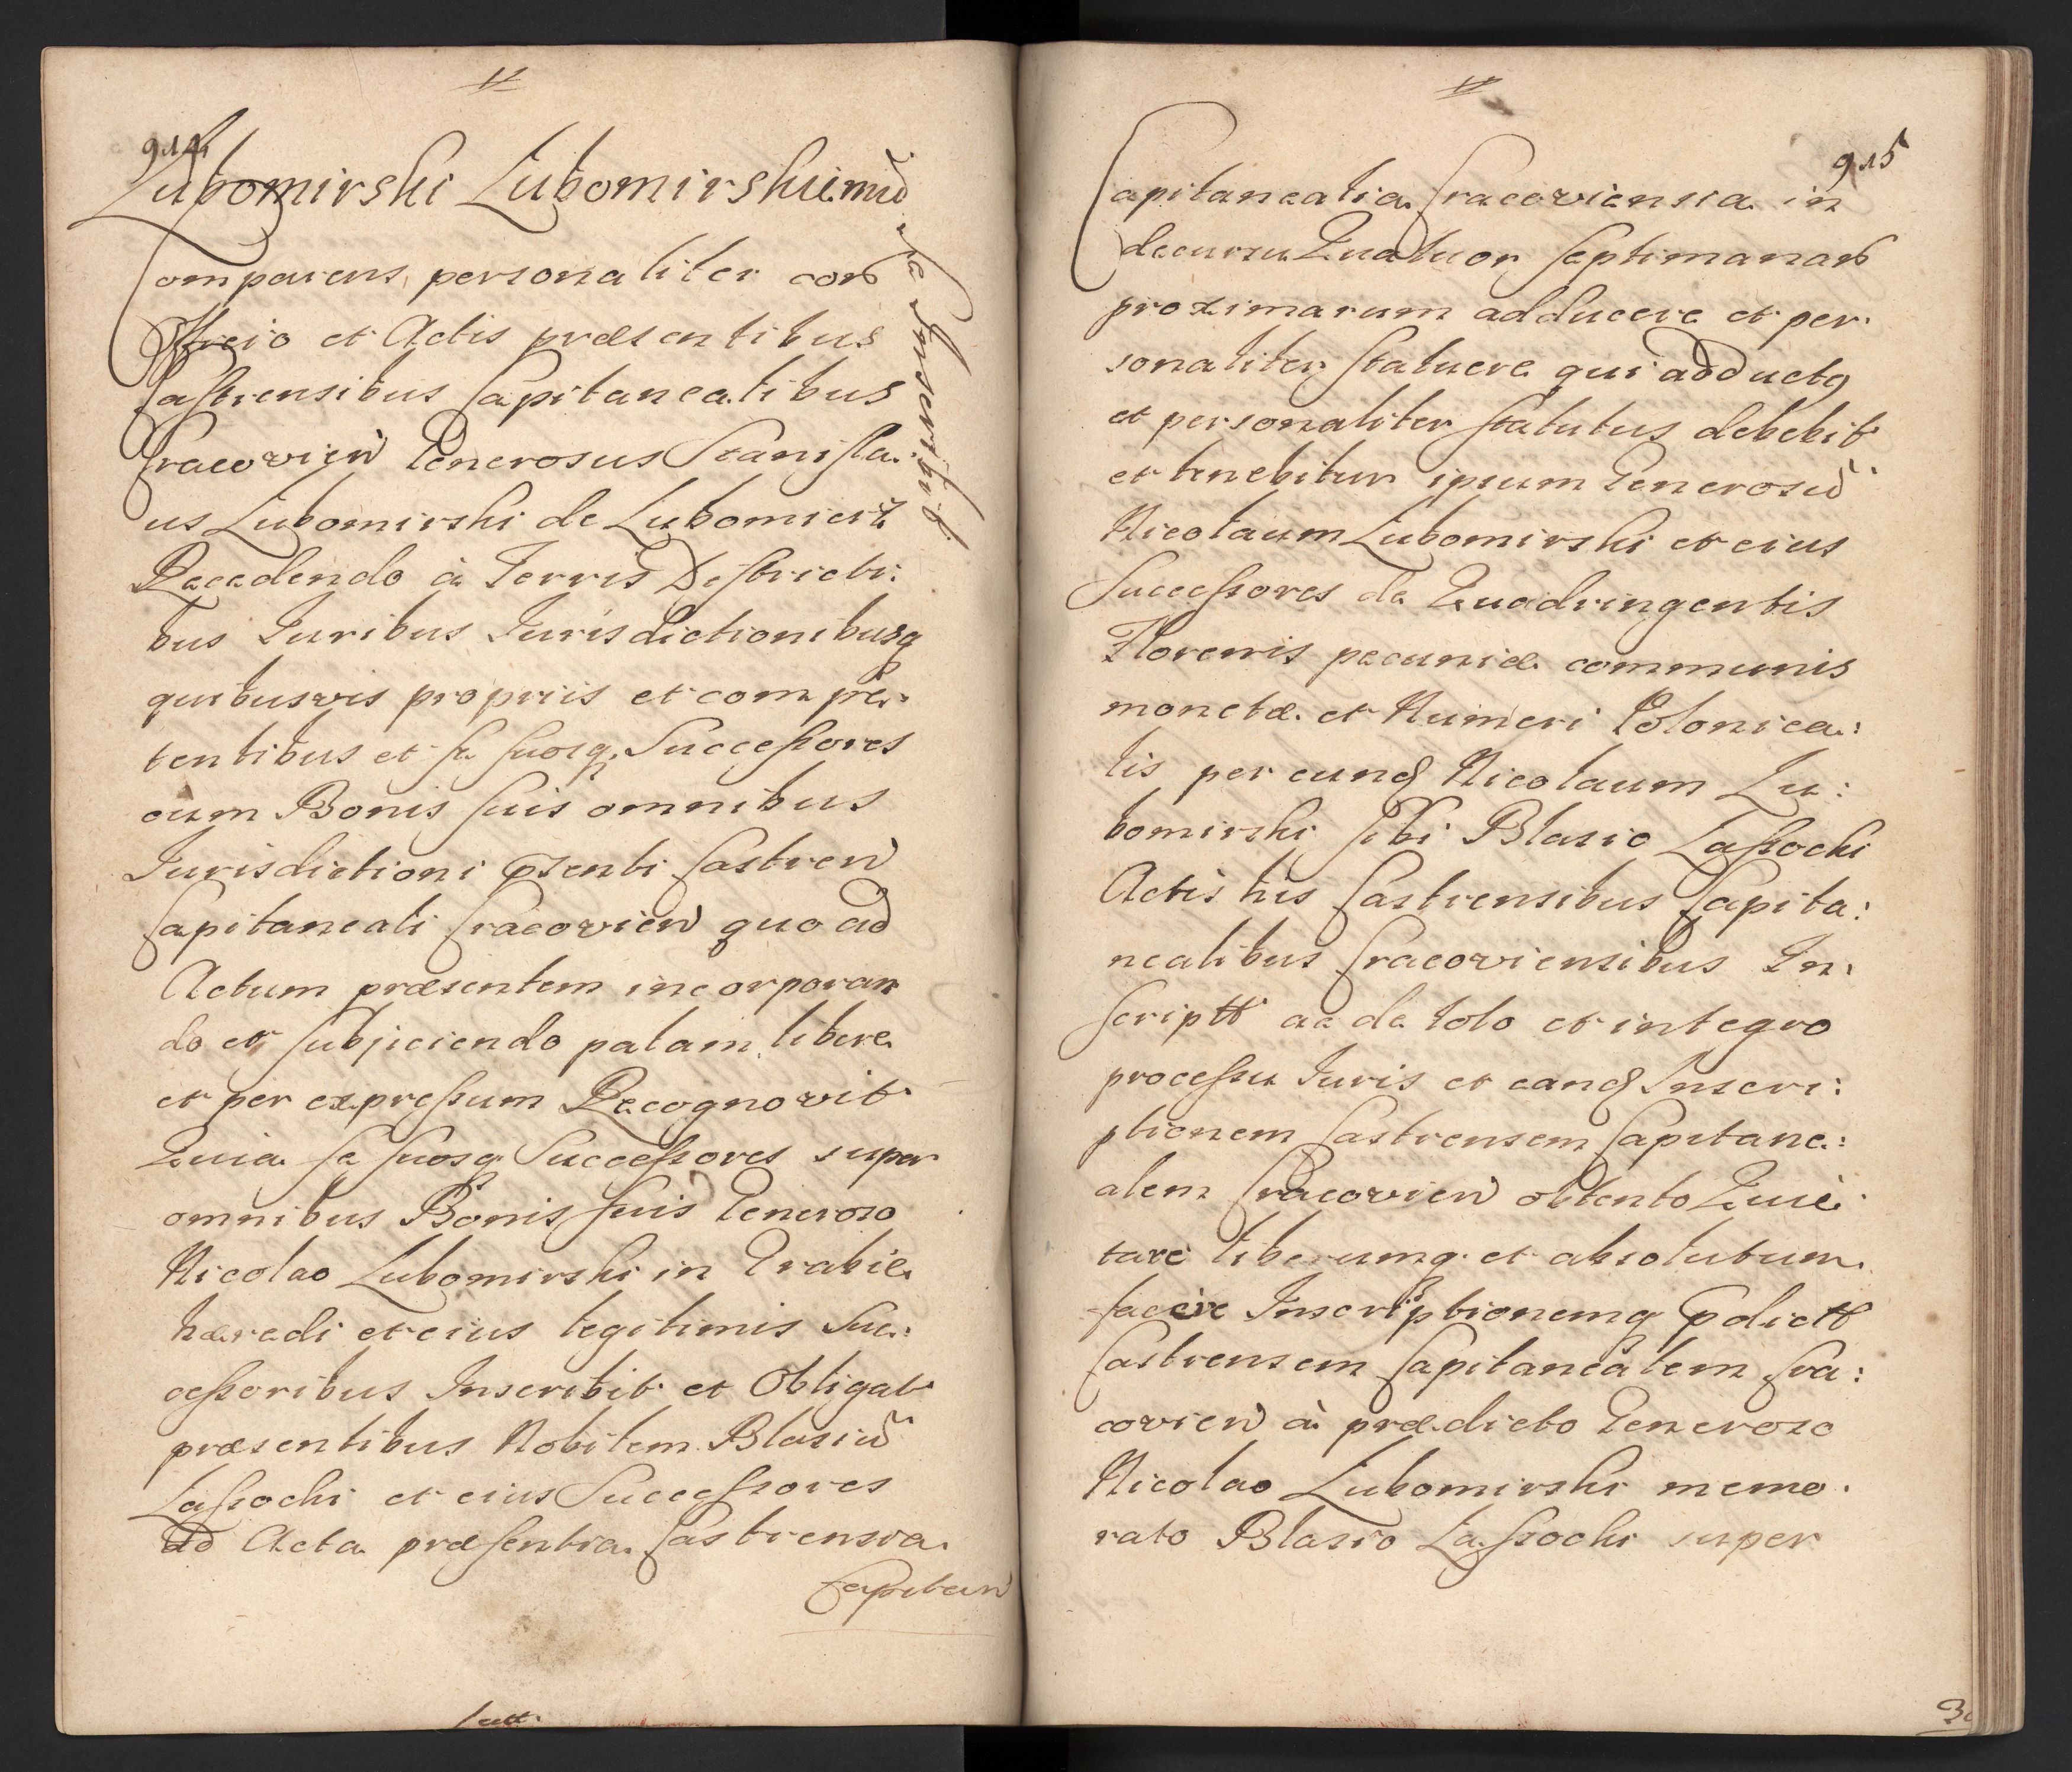 914
Lubomirski Lubomirskiemū
se Inscribit
Comparens personaliter cor̄
Officio et Actis præsentibus
Castrensibus Capitanealibus
Cracovień Generosus Stanisla:
us Lubomirski de Lubomierz
Recedendo à Terris Districti:
bus Juribus Jurisdictionibusq
quibusvis propriis et compe:
tentibus et se suosq; Successores
cum Bonis suis omnibus
Jurisdictioni pŕsenti Castreń
Capitaneali Cracovień quo ad
Actum præsentem incorporan
do et subjiciendo palam libere
et per expressum Recognovit
Quia se suosq Successores super
omnibus Bonis suis Generoso
Nicolao Lubomirski in Grabie
hæredi et eius legitimis Suc:
cessoribus Inscribit et Obligat
præsentibus Nobilem Blasiū
Lassocki et eius Successores
ad Acta præsentia Castrensia
Capitań
915
Capitanealia Cracoviensia in
decursu Quatuor septimanar̄
proximarum adducere et per:
sonaliter statuere qui adductq
et personaliter statutus debebit
et tenebitur ipsum Generosū
Nicolaum Lubomirski et eius
Successores de Quadringentis
Florenis pecuniæ communis
monetæ et Numeri Polonica:
lis per eund Nicolaum Lu:
bomirski sibi Blasio Lassocki
Actis his Castrensibus Capita:
nealibus Cracoviensibus In:
scriptt ac de toto et integro
processu Juris et eand Inscri:
ptionem Castrensem Capitane:
alem Cracovień obtento Quie:
tare liberumq et absolutum
facere Inscriptionemq pdictt
Castrensem Capitanealem Cra:
covień à prædicto Generoso
Nicolao Lubomirski memo:
rato Blasio Lassocki super